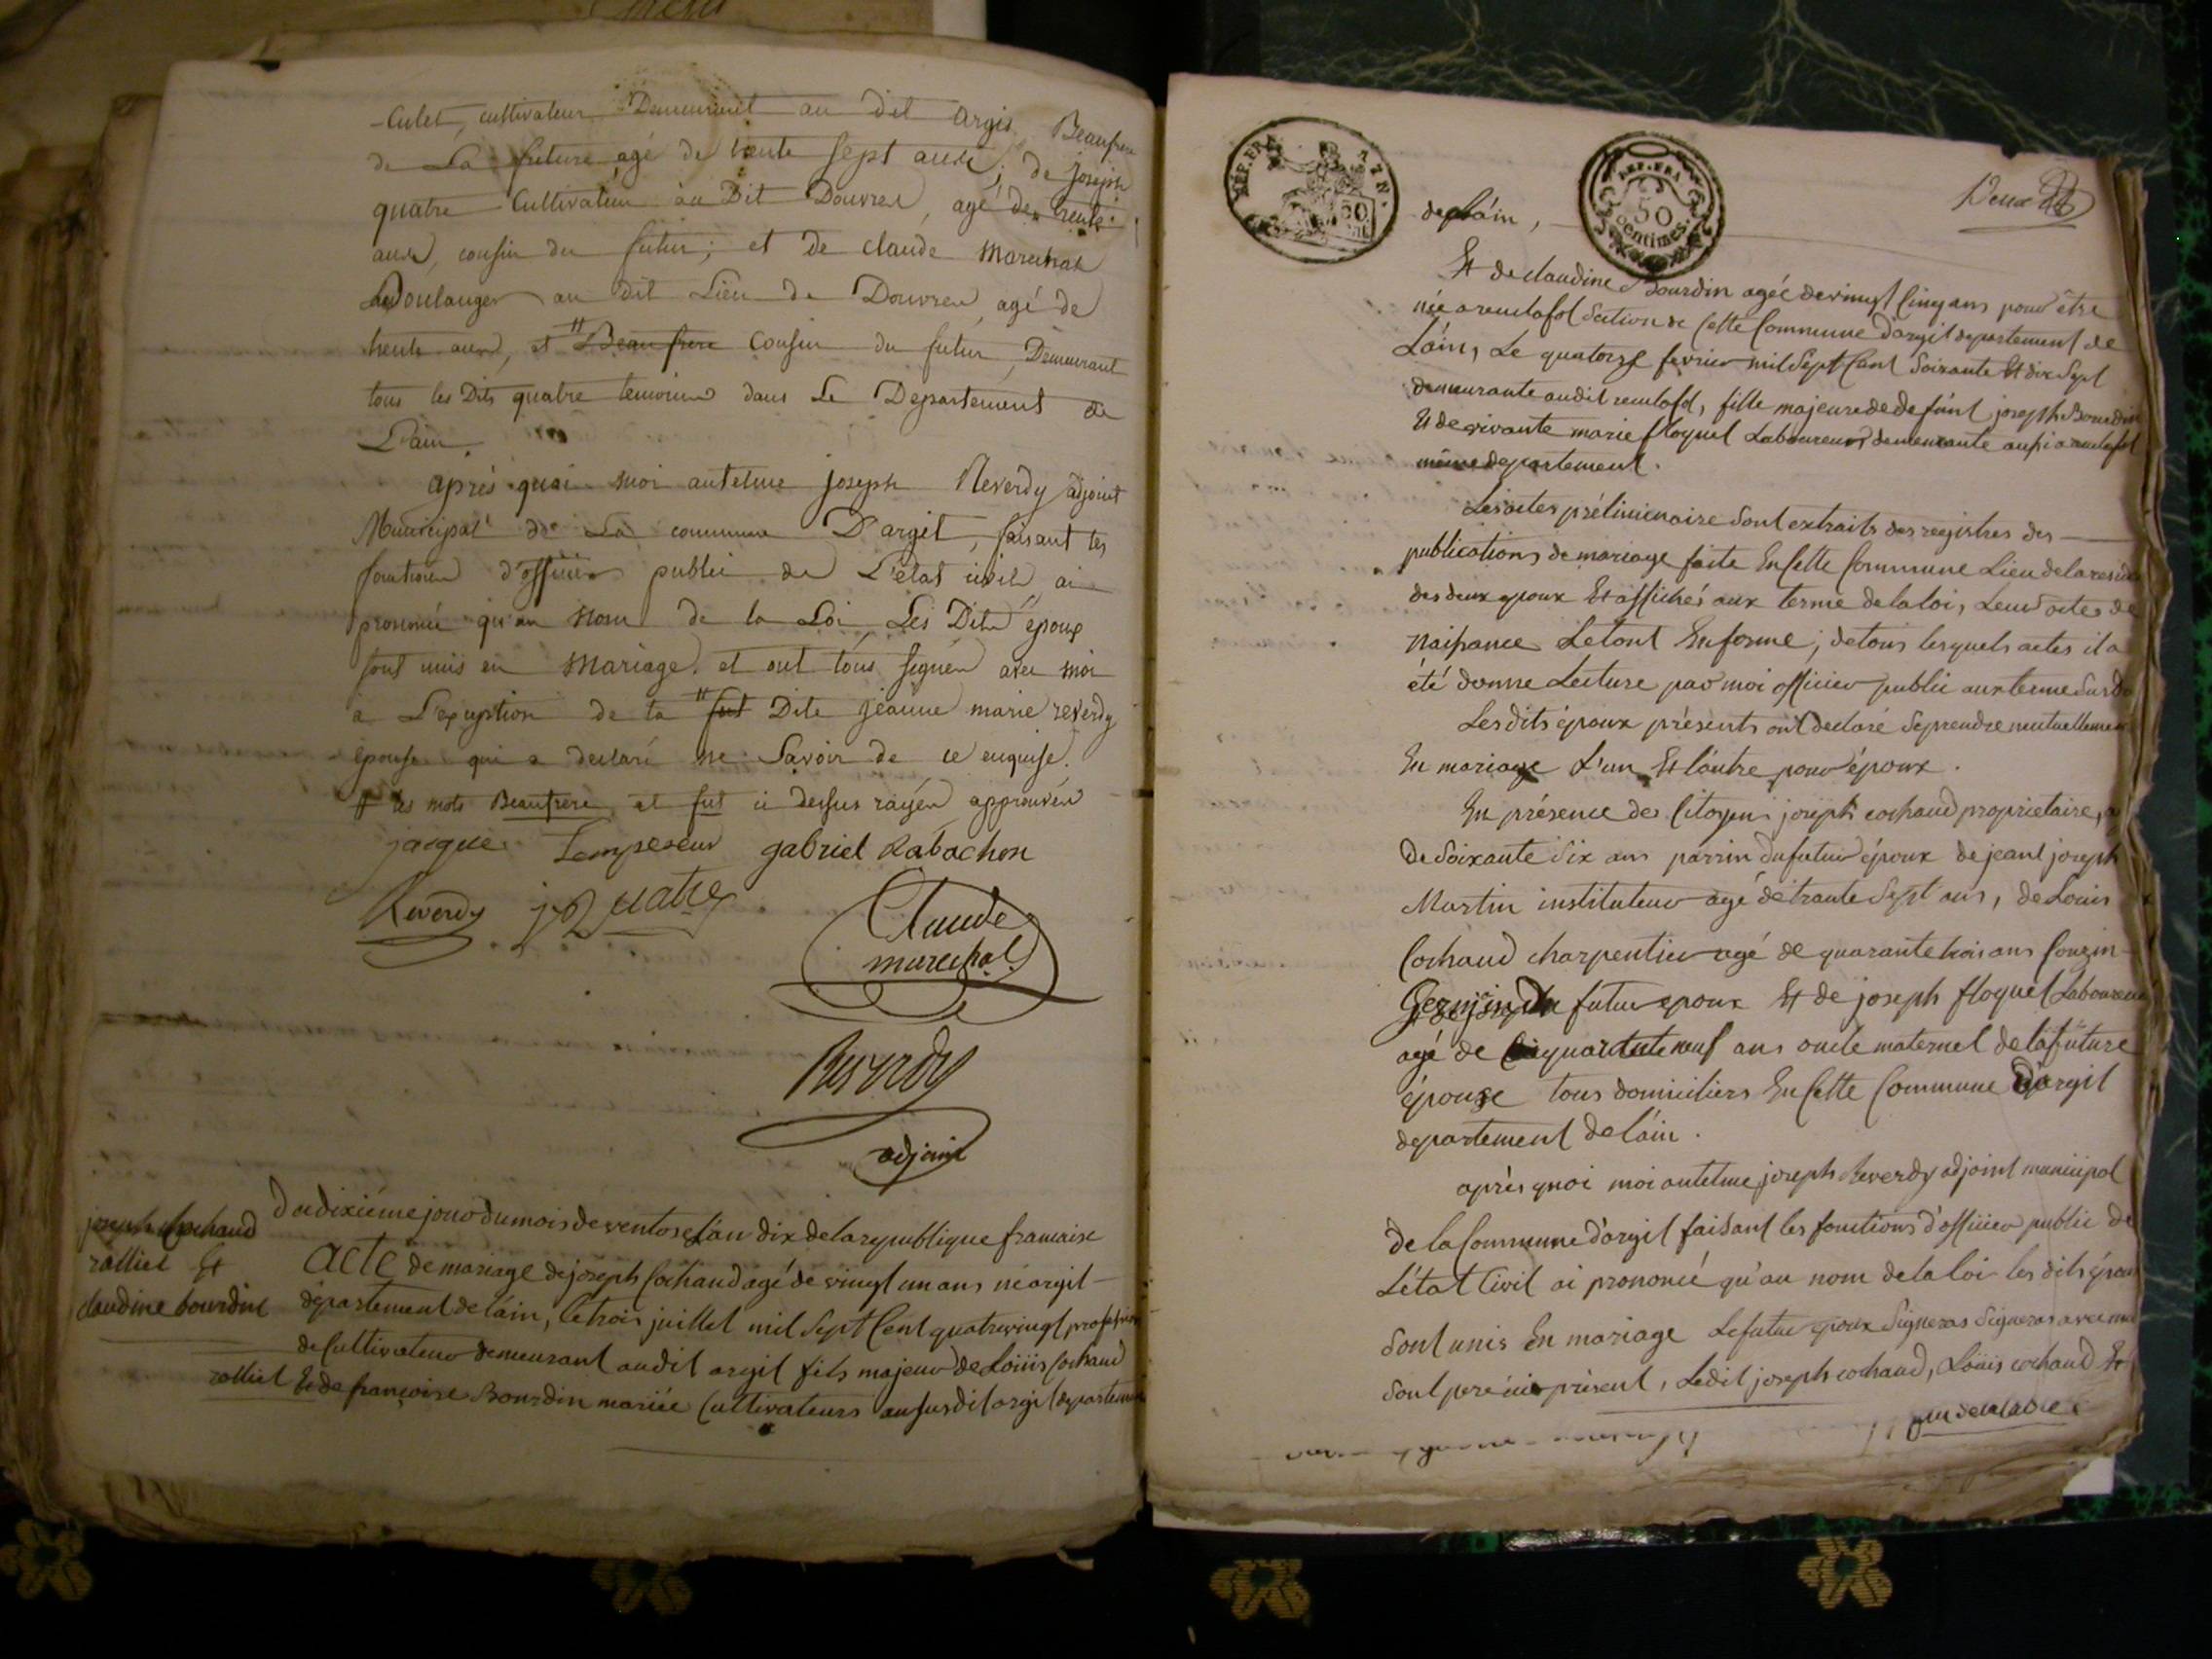 -Culet, cultivateur Demeurant au dit argis Beaufrere
de La future agé de trente sept ans; de joseph
quatre Cultivateur au Dit Douvres, agé de trente
ans, cousin du futur; et de claude Marechal
Boulanger au dit Lieu de Douvres, agé de
trente ans, et # Beaufrere Cousin du futur, Demeurant
tous les Dits quatre temoins dans Le Departement de
L'ain.
après quoi moi antelme joseph Reverdy adjoint
Municipal de La commune D'argit, faisant les
fonctions d'officier public de L'état civil, ai
prononcé qu'au Nom de la Loi Les Dits époux
sont unis en Mariage. et ont tous signés avec moi
a L'exception de la # fut Dite jeanne marie reverdy
épouse qui a declaré ne Savoir de ce enquise.
# les mots Beaufrere et fut ci dessus rayés approuvés
jacque Lempereur gabriel Rabachon
Reverdy j Quatre
Claude
marechal
Reverdy
adjoint
joseph Cochaud
ratliet Et
claudine bourdin
Du dixiéme jour du mois de ventose l'an dix de la republique francaise
Acte de mariage de joseph Cochaud agé de vingt un ans né argit
département de láin, le trois juillet mil Sept Cent quatrevingt profession
de Cultivateur demeurant audit argit fils majeur de Loüis Cochaud
ratliet Et de françoise Bourdin mariée Cultivateurs au susdit argit departement
de láin,
REP. FRA.
50
REP. FRA
50
centimes
Deux
Et de claudine Bourdin agée de vingt Cinq ans pour être
née a reculafol Section de Cette Commune d'argit departement de
Láin, Le quatorze fevrier mil Sept Cent Soixante Et dix Sept
demeurante audit reculafol, fille majeure de defúnt joseph Bourdin
Et de vivante marie floquet Laboureurs demeurante aussi a reculafol
même departement.
Les actes préliminaire Sont extraits des registres des
publications de mariage faite En Cette Commune Lieu de la residence
des deux epoux Et affichés aux terme de la loi, Leurs actes de
Naissance Le tout En forme; de tous lesquels actes il a
été donné Lecture par moi officier public aux terme Susdit
Les dits époux présents ont declaré Se prendre mutuellement
En mariage L'un Et láutre pour époux.
En présence des Citoyens joseph cochaud proprietaire, a
de Soixante Six ans parrin du futur époux de jeant joseph
Martin instituteur agé de trante Sept ans, de Louis
Cochaud charpentier agé de quarante trois ans Couzin
Germin du futur epoux Et de joseph floquet Laboureur
agé de Cinquante neuf ans oncle maternel de la future
épouse tous domiciliers En Cette Commune d'argit
departement de láin.
après quoi moi antelme joseph Reverdy adjoint municipal
de la Commune d'argit faisant les fonctions d'officier public de
L'état Civil ai prononcé qu'au nom de la loi les dits époux
Sont unis En mariage Le futur epoux Signeras Signeras avec moi
Sont pere ici présent, Ledit joseph cochaud, Loüis cochaud Et